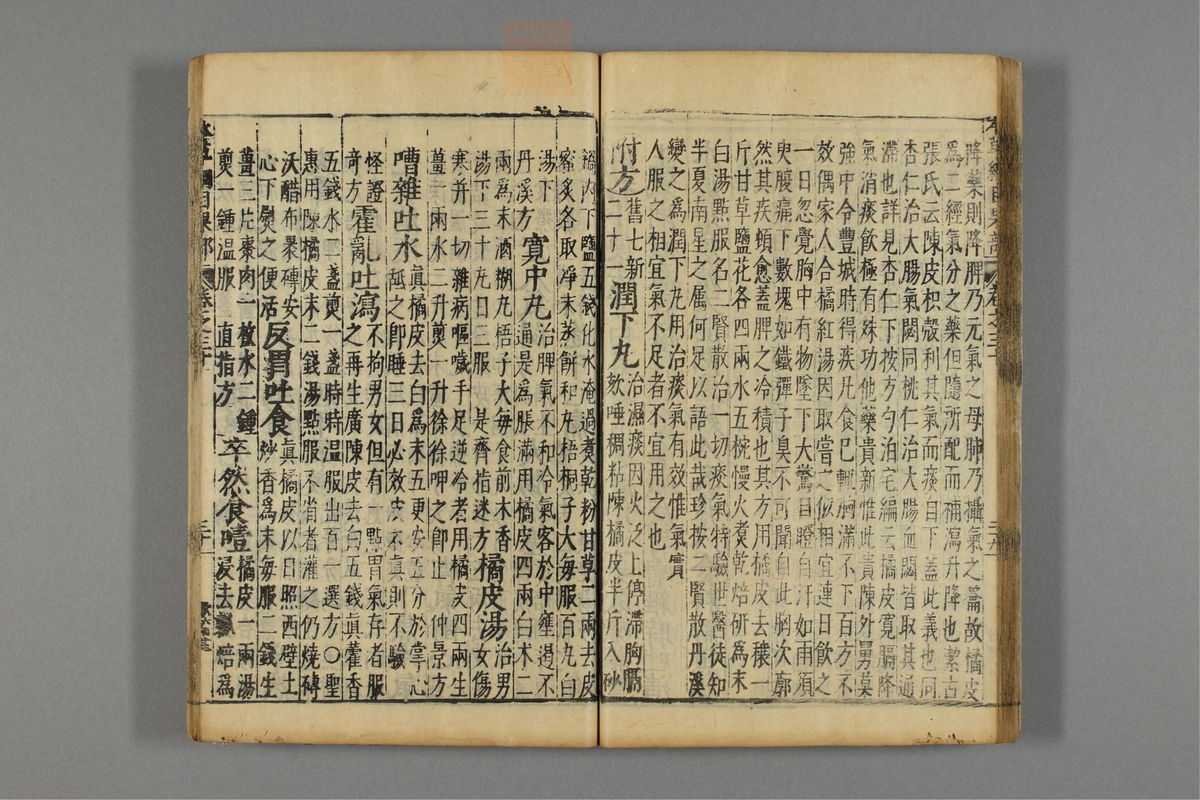 降藥則降脾乃元氣之母肺乃攝氣之籥故橘皮
爲二經氣分之藥但隨所配而補瀉升降也潔古
張氏云陳皮枳殼利其氣而痰自下蓋此義也同
杏仁治大腸氣閟同桃仁治大腸血閟皆取其通
滯也詳見杏仁下按方勺泊宅編云橘皮寬膈降
氣消痰飲極有殊功他藥貴新惟此貴陳外舅莫
強中令豐城時得疾凡食已輒胸滿不下百方不
效偶家人合橘紅湯因取嘗之似相宜連日飲之
一日忽覺胸中有物墜下大驚目瞪自汗如雨須
臾腹痛下數塊如鐵彈子臭不可聞自此胸次廓
然其疾頓愈蓋脾之冷積也其方用橘皮去穰一
斤甘草鹽花各四兩水五椀慢火煑乾焙研爲末
白湯點服名二賢散治一切痰氣特驗世醫徒知
半夏南星之屬何足以語此哉珍按二賢散丹溪
變之爲潤下丸用治痰氣有效惟氣實
人服之相宜氣不足者不宜用之也
附方舊七新二十一潤下丸治濕痰因火泛上停滯胸膈欬唾稠粘陳橘皮半斤入砂
鍋內下鹽五錢化水淹過煑乾粉甘草二兩去皮
蜜炙各取凈末蒸餅和丸梧桐子大每服百丸白
湯下丹溪方寬中丸治脾氣不和冷氣客於中壅遏不通是爲脹滿用橘皮四兩白术二
兩爲末酒糊丸梧子大每食前木香
湯下三十丸日三服是齊指迷方橘皮湯治男女傷
寒并一切雜病嘔噦手足逆冷者用橘皮四兩生
薑一兩水二升煎一升徐徐呷之卽止仲景方
嘈雜吐水眞橘皮去白爲末五更安五分於掌心舐之卽睡三日必效皮不眞則不驗
怪證奇方霍亂吐瀉不拘男女但有一點胃氣存者服之再生廣陳皮去白五錢眞藿香
五錢水二盞煎一盞時時溫服出百一選方○聖
惠用陳橘皮末二錢湯點服不省者灌之仍燒磚
沃醋布褁磚安心下熨之便活反胃吐食眞橘皮以日照西壁土炒香爲末每服二錢生
薑三片棗肉一枚水二鍾
煎一鍾溫服直指方卒然食噎橘皮一兩湯浸去瓤焙爲